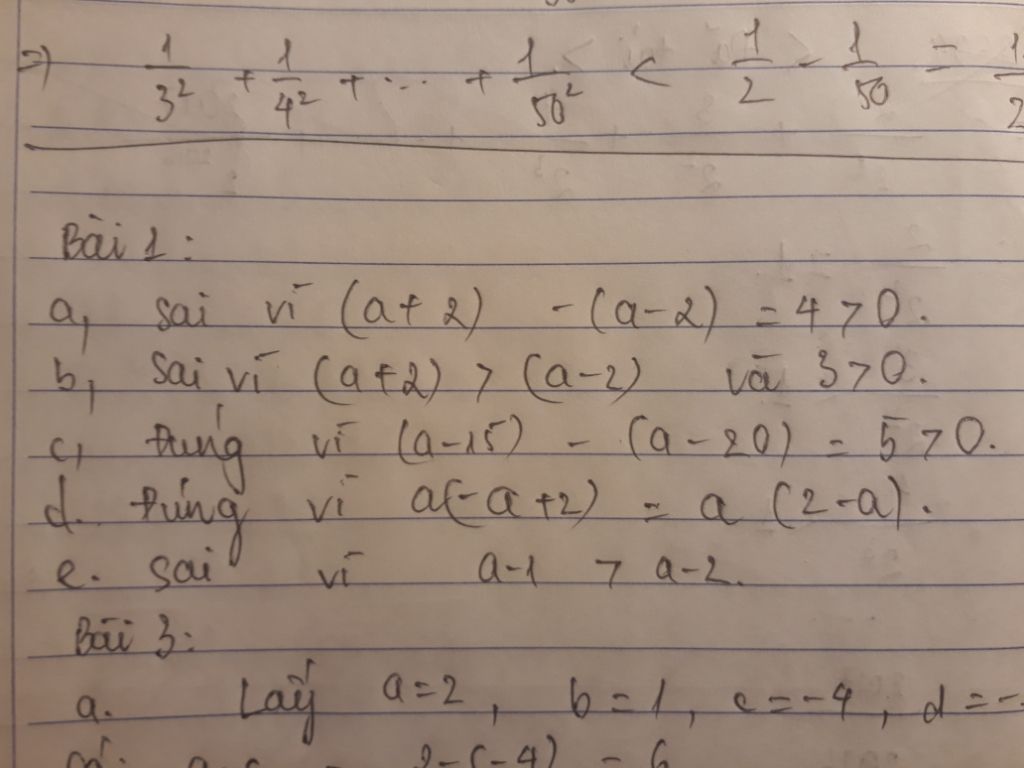 =) 1/3² + 1/4² + ... + 1/50² < 1/2 - 1/50 = 1/2
Bài 1:
a, sai vì (a+2) - (a-2) = 4 > 0.
b, sai vì (a+2) > (a-2) và 3 > 0.
c, đúng vì (a-15) - (a-20) = 5 > 0.
d. đúng vì a(-a+2) = a (2-a).
e. sai vì a-1 > a-2.
Bài 3:
a. Lấy a=2, b=1, c=-4, d=-
2-(-4) = 6